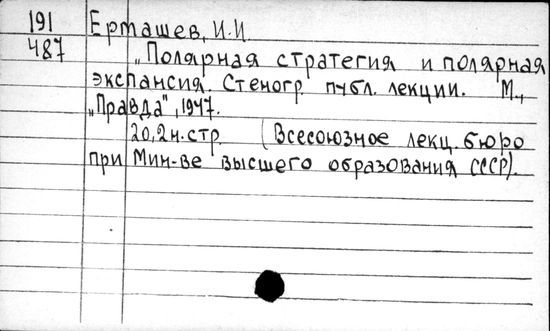 191 Ермашев, И.И.
487 „Полярная стратегия и полярная
экспансия. Стеногр. публ. лекции. М.,
„Правда", 1947.
20,2н.стр. (Всесоюзное лекц. бюро
при Мин-ве высшего образования СССР).